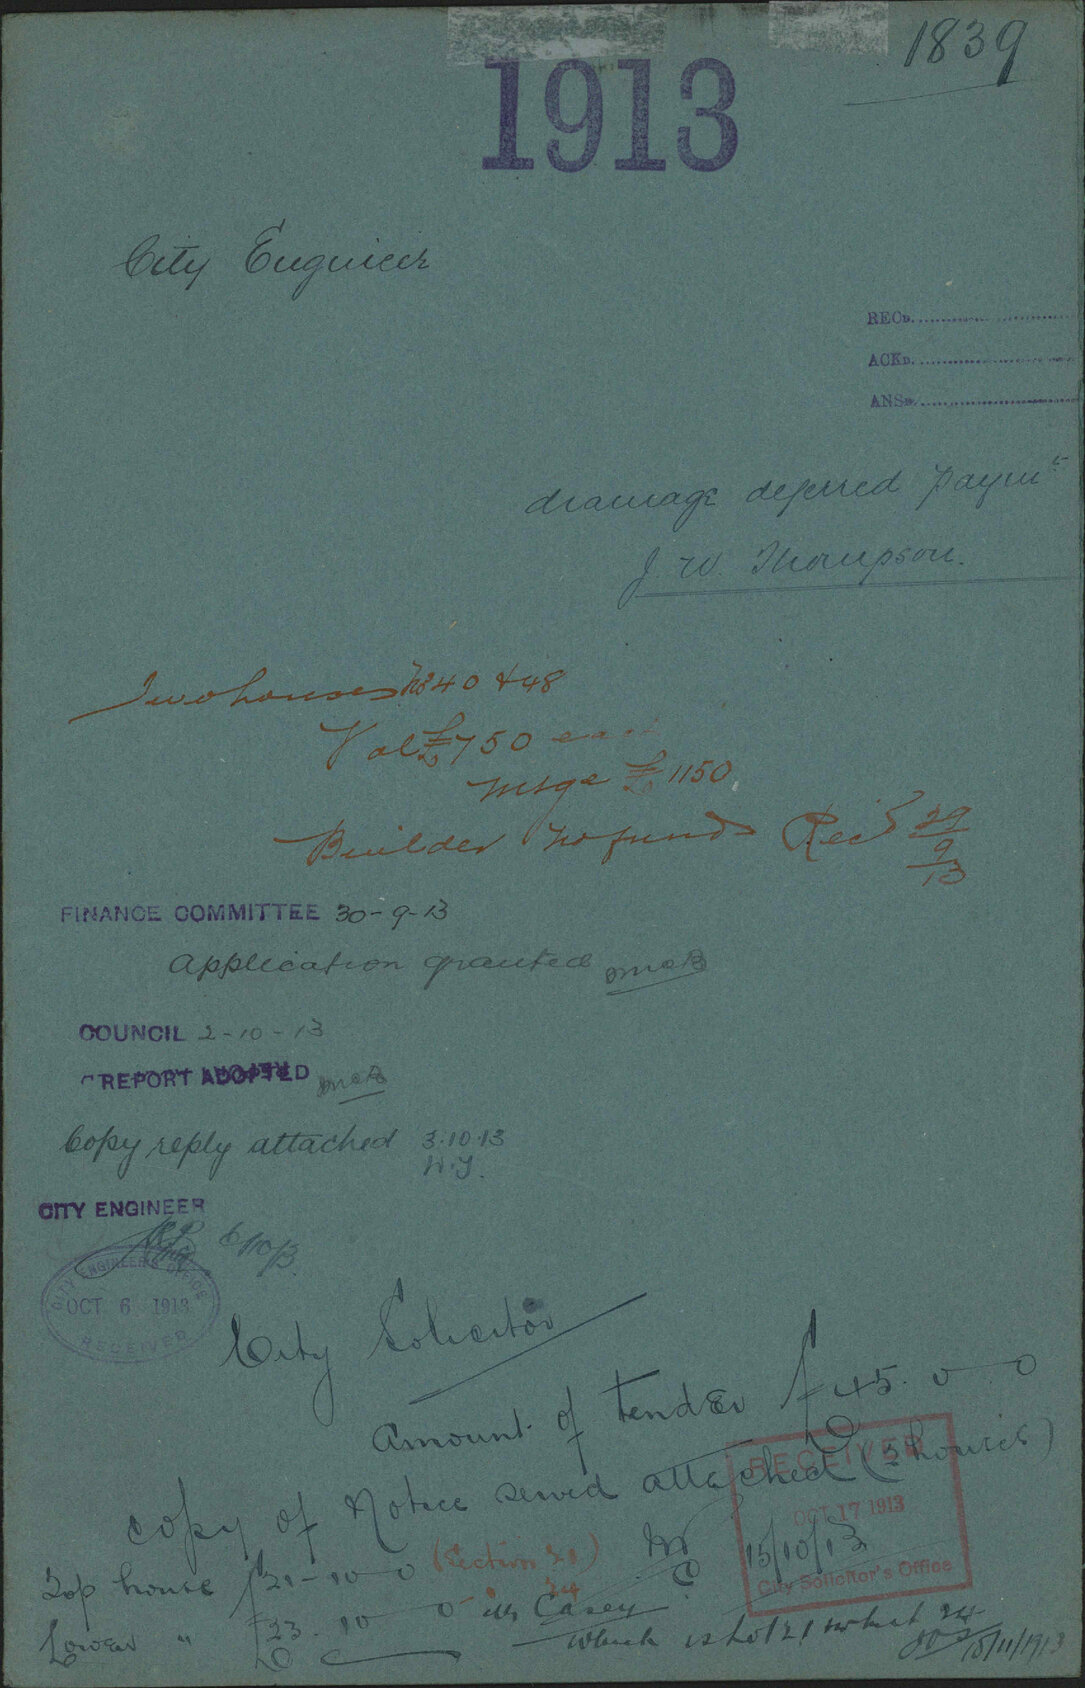 1839
1913
City Engineer
RECD.
ACKD.
ANSD.
drainage deferred paymt
J. W. Thompson.
Two houses Nos 40 & 48
Val £750 each
Mtge £1150
Builder no funds Rec'd 29/9/13
FINANCE COMMITTEE 30-9-13
Application granted
COUNCIL 2-10-13
REPORT ADOPTED
Copy reply attached 3.10.13
CITY ENGINEER
6/10/13
CITY ENGINEER'S OFFICE
OCT. 6 1913
RECEIVED
City Solicitor
Amount of tender £45. 0 0
Copy of Notice served attached (2 houses)
RECEIVED
OCT 17 1913
City Solicitor's Office
15/10/13
Top house £21-10-0 (Section 21)
24
Lower " £23. 10 0 Mr Casey
Which is Lot 21 & what 24
18/11/1913